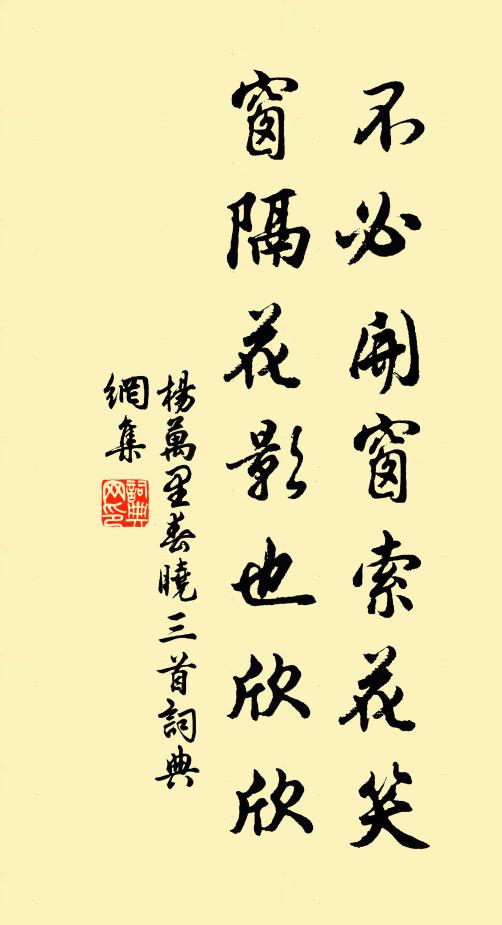 不必開窗索花笑
窗隔花影也欣欣
楊萬里春曉三首詞典
網集
詞典
网印